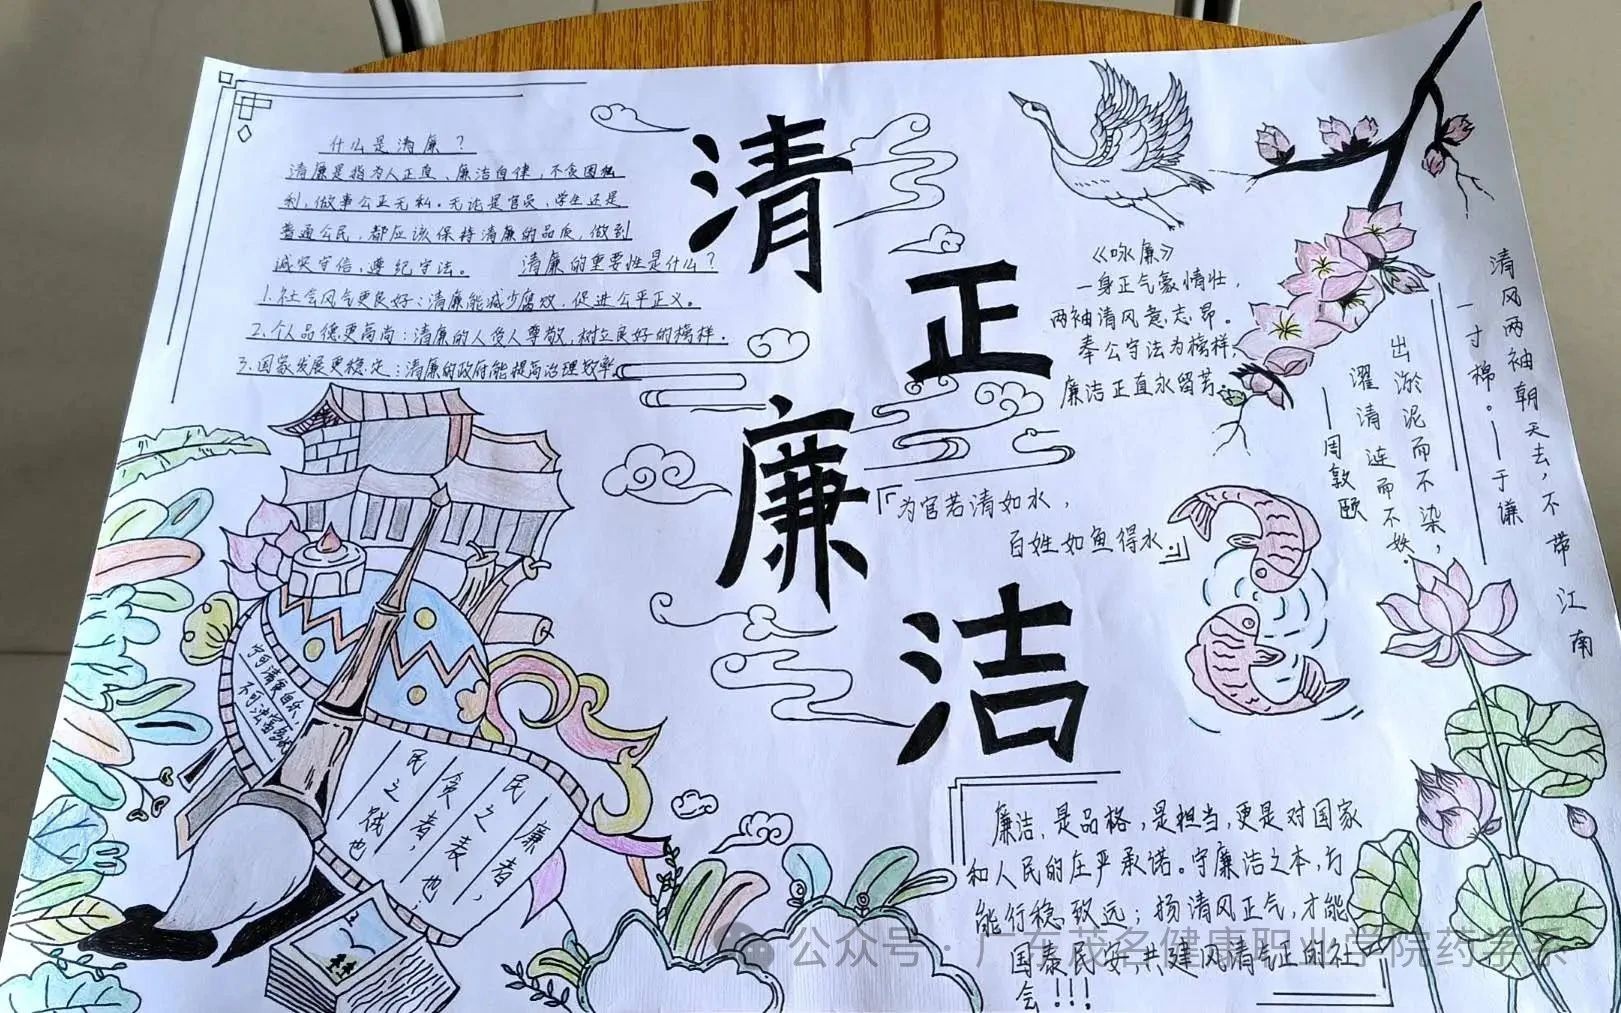 什么是清廉？
清廉是指为人正直、廉洁自律，不贪图私
利，做事公正无私。无论是官员，学生还是
普通公民，都应该保持清廉的品质，做到
诚实守信，遵纪守法。
清廉的重要性是什么？
1.社会风气更良好：清廉能减少腐败，促进公平正义。
2.个人品德更高尚：清廉的人受人尊敬，树立良好的榜样。
3.国家发展更稳定：清廉的政府能提高治理效率。
清
正
廉
洁
《咏廉》
一身正气豪情壮，
两袖清风意志昂。
奉公守法为榜样，
廉洁正直永留芳。
清风两袖朝天去，不带江南
一寸棉。——于谦
出淤泥而不染，
濯清涟而不妖。
——周敦颐
『为官若清如水，
百姓如鱼得水。』
宁可清贫自乐，
不可浊富
廉者，
民之表也；
贪者，
民之贼也
廉洁，是品格，是担当，更是对国家
和人民的庄严承诺。守廉洁之本，方
能行稳致远；扬清风正气，才能
国泰民安共建风清气正的社
会！！！
公众号·广东茂名健康职业学院药学系